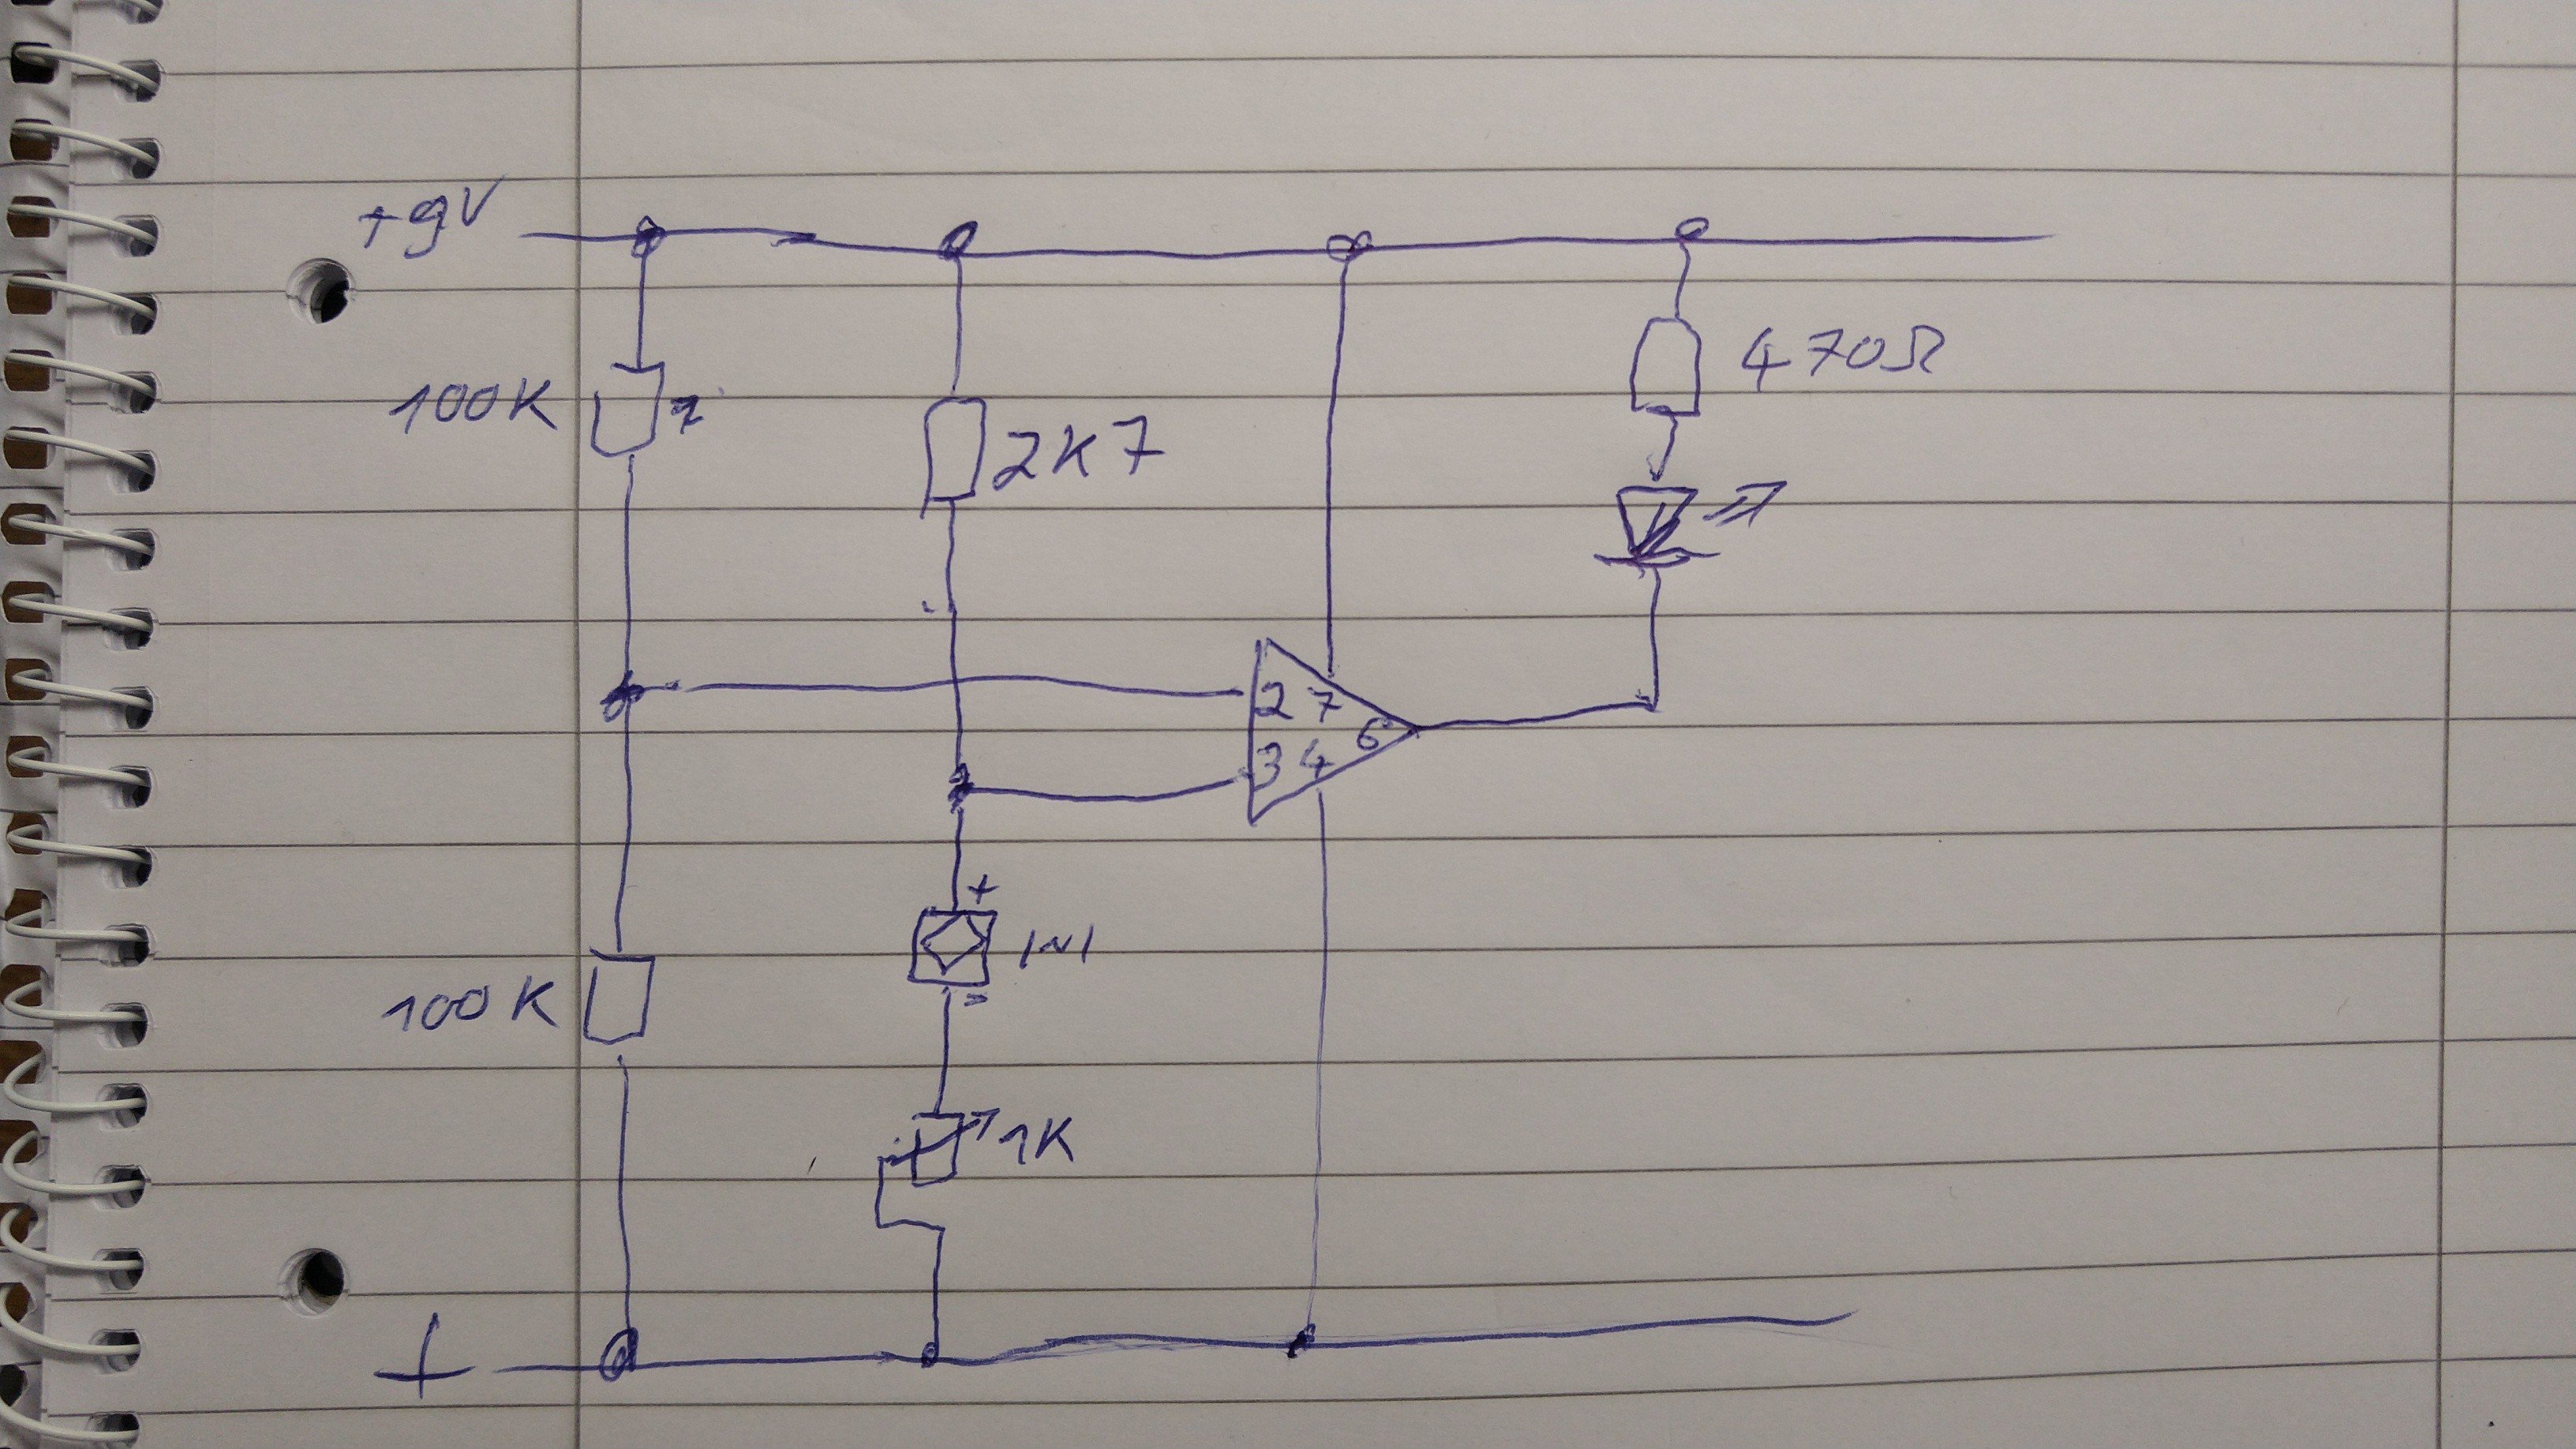 +9V
470Ω
100K
2K7
2 7
6
3 4
+
IN1
-
100K
1K